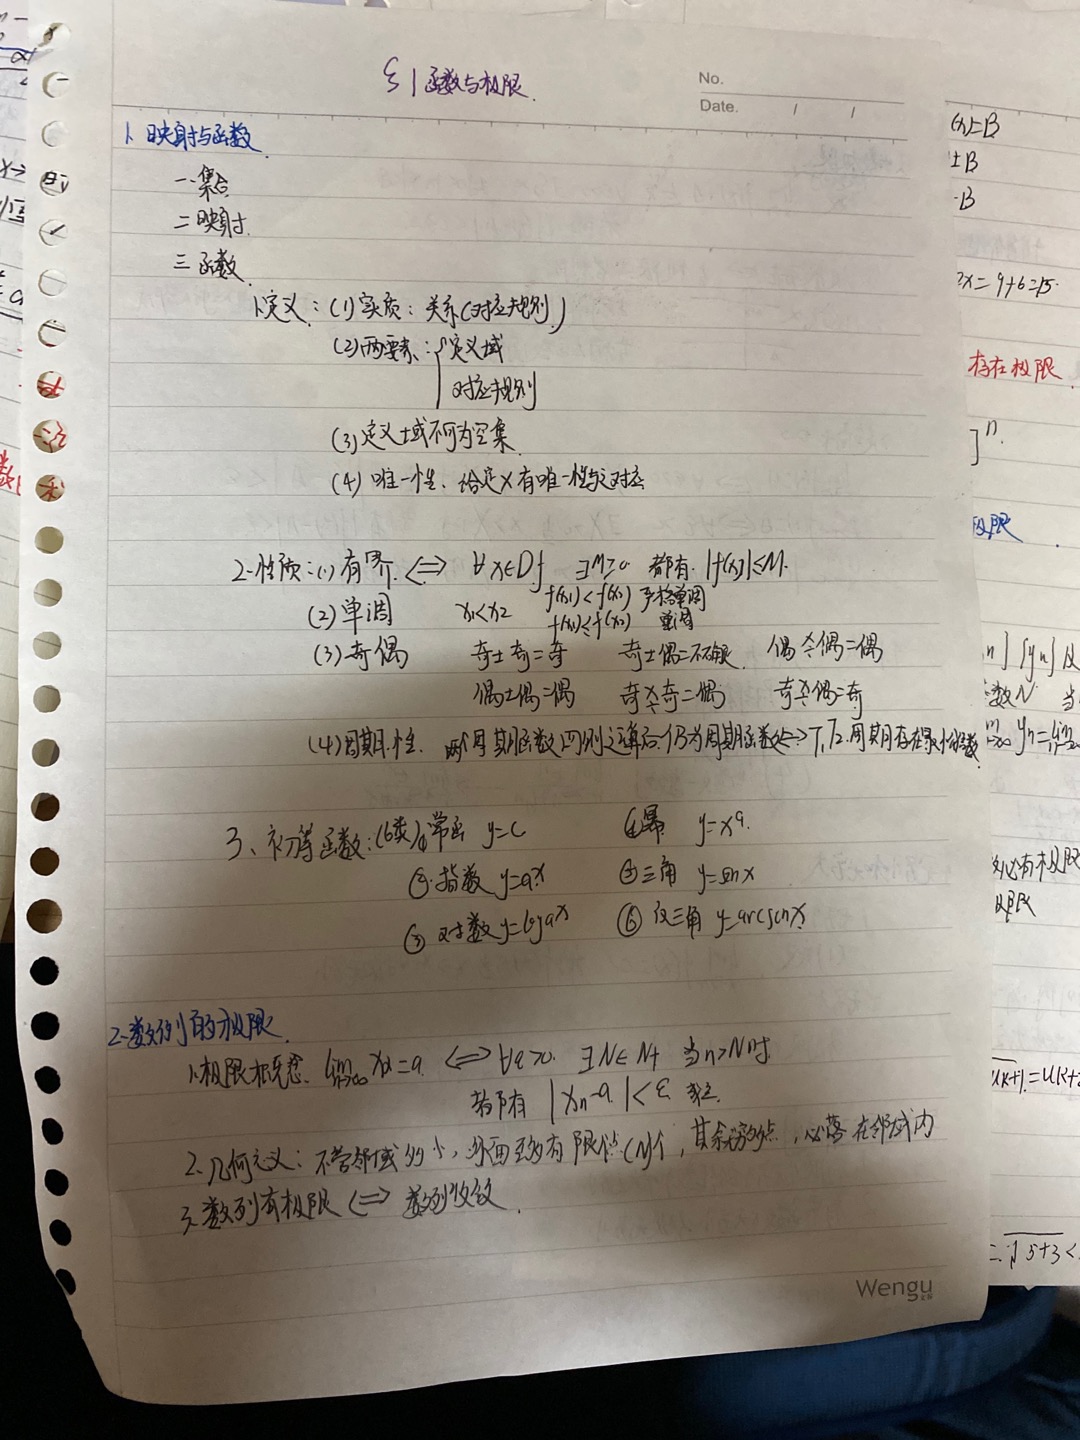 §1 函数与极限.
No.
Date. / /
1. 映射与函数.
一.集合
二 映射.
三 函数.
1.定义: (1) 实质: 关系(对应规则)
(2) 两要素: { 定义域
对应规则
(3) 定义域不可为空集.
(4) 唯一性. 给定x有唯一性与之对应
2.性质: (1) 有界. ⇔ ∀x∈Df ∃M≥0 都有. |f(x)|≤M.
(2) 单调 x1<x2 f(x1)<f(x2) 严格单调
f(x1)≤f(x2) 单调
(3) 奇偶 奇±奇=奇 奇±偶=不确定. 偶×÷偶=偶
偶±偶=偶 奇×÷奇=偶 奇×÷偶=奇
(4) 周期性. 两个周期函数四则运算后仍为周期函数⇔T1,T2.周期存在最小公倍数
3、初等函数: (6类) ① 常函 y=c ④幂 y=xᵃ.
②.指数 y=aˣ ⑤三角 y=sinx
③ 对数 y=logax ⑥ 反三角 y=arcsinx
2.数列的极限.
1.极限概念. lim n→∞ Xn=a. ⇔ ∀ε>0. ∃N∈N+ 当n>N时.
都有 |Xn-a|<ε 成立.
2.几何意义: 不管邻域多小, 外面至多有限个点(N)个, 其余无穷多点, 必落在邻域内
3.数列有极限 ⇔ 数列收敛.
Wengu
=B
±B
·B
2x=9+6=15.
存在极限.
]ⁿ.
极限.
数N. 当
必有极限
极限
√5+3<